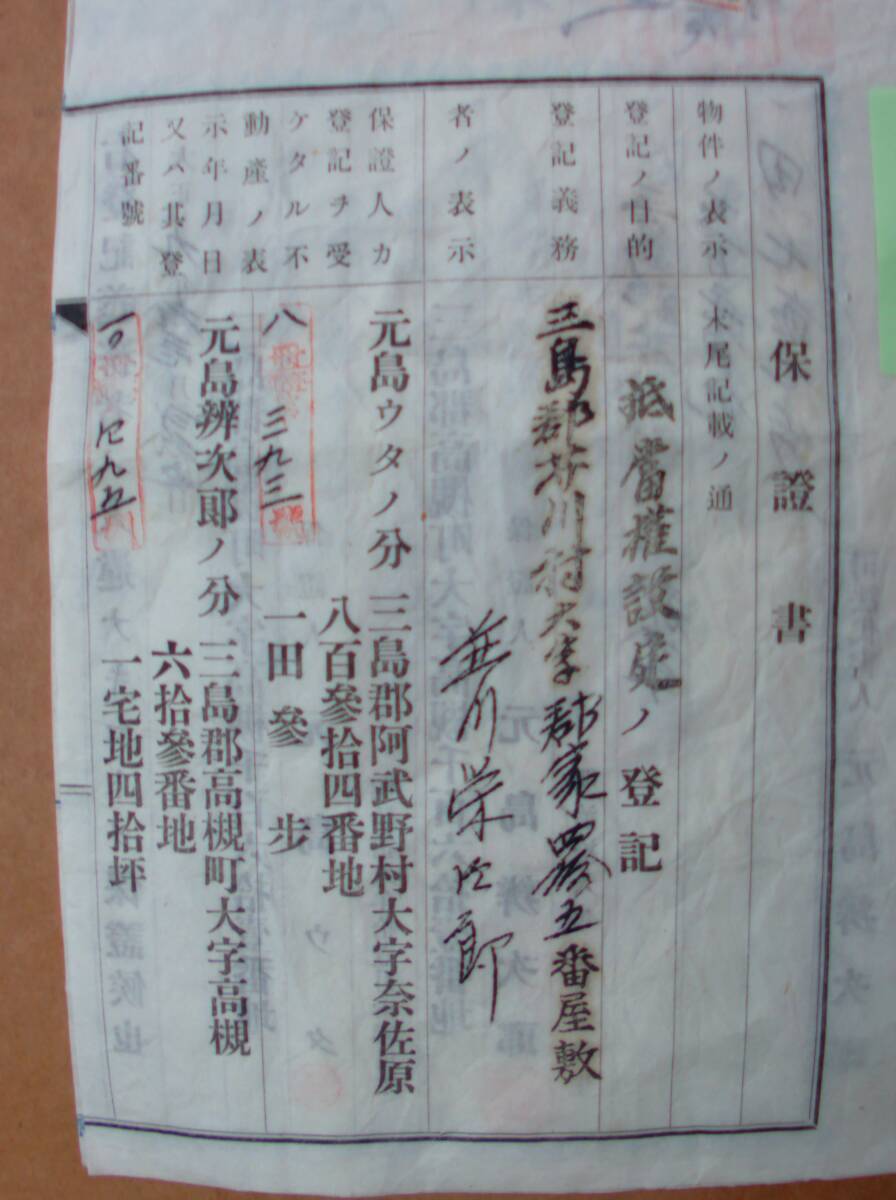 保證書
物件ノ表示
末尾記載ノ通
登記ノ目的
抵當權設定ノ登記
登記義務
者ノ表示
三島郡芥川村大字郡家四拾五番屋敷
並川栄次郎
保證人カ
登記ヲ受
ケタル不
動產ノ表
示年月日
又ハ其登
記番號
元島ウタノ分 三島郡阿武野村大字奈佐原
八百參拾四番地
一田參步
八 三九三
元島辨次郎ノ分 三島郡高槻町大字高槻
六拾參番地
一宅地四拾坪
一〇 四九五